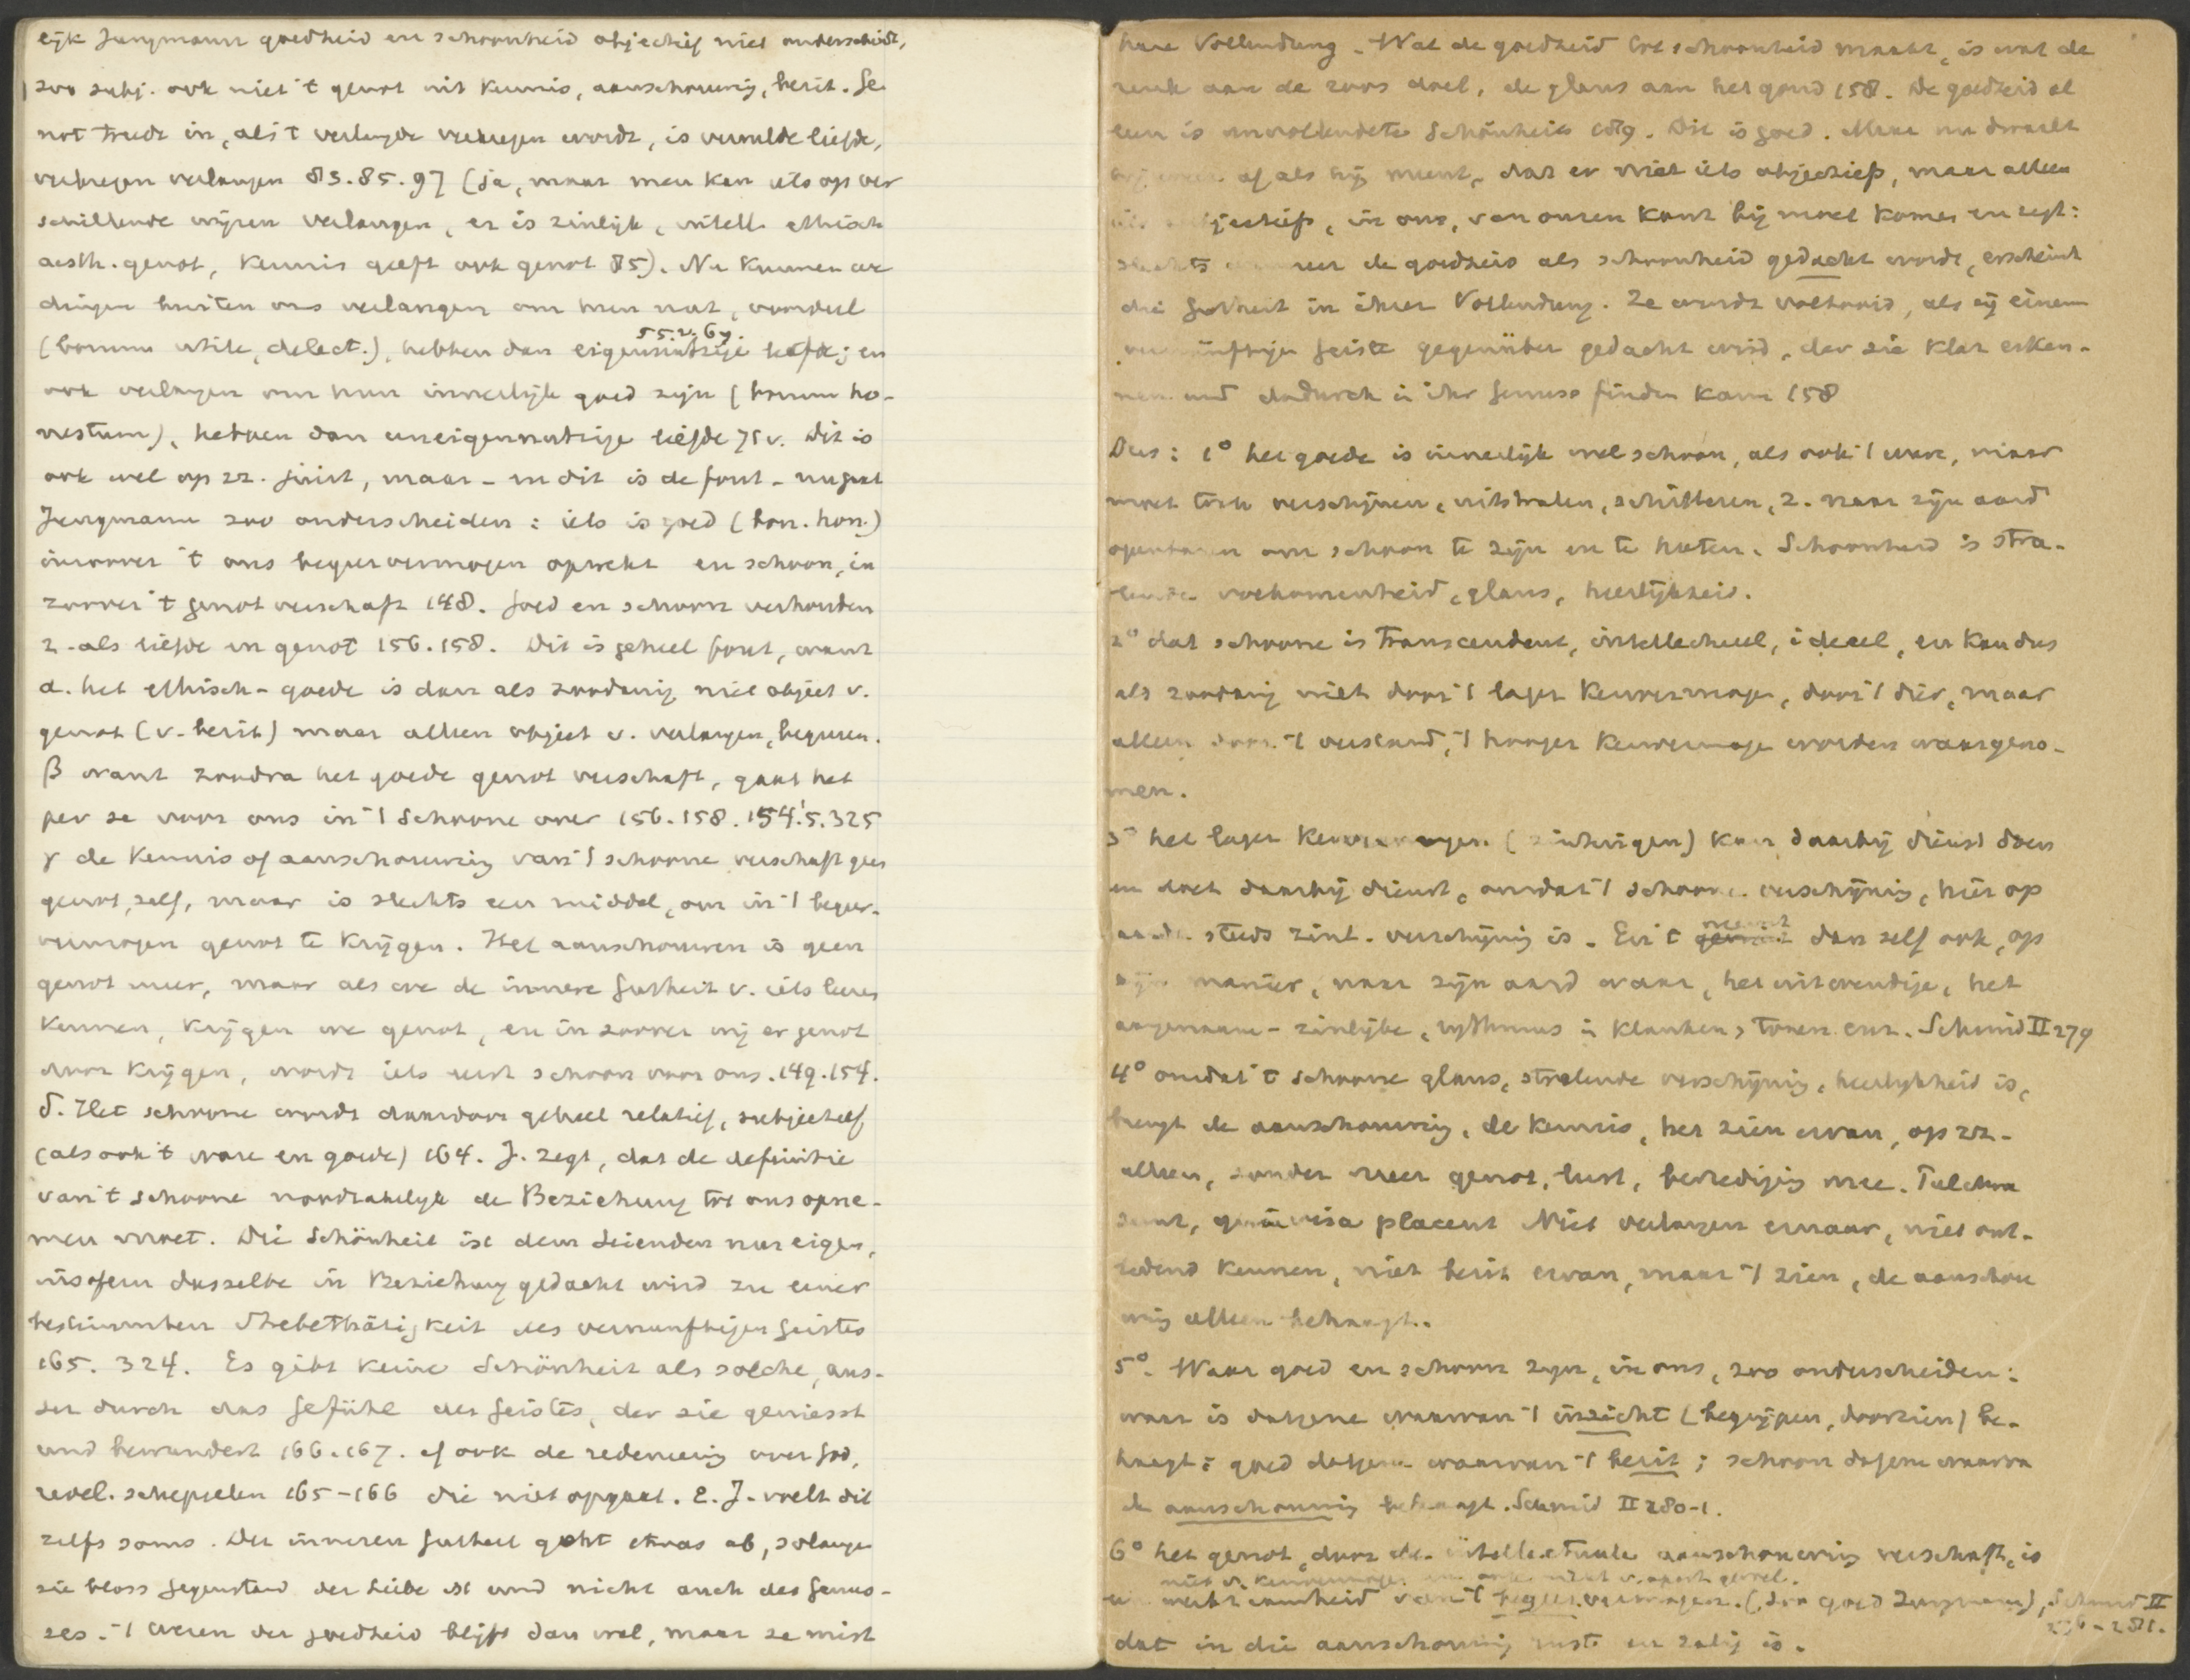 eijk Jungmann goedheid en schoonheid objectief niet onderscheidt,
zoo subj. ook niet 't genot uit kennis, aanschouwing, bezit. Ge-
not treedt in, als 't verlangde verkregen wordt, is vervulde liefde,
verkregen verlangen 83.85.97 (ja, maar men kan iets op ver
schillende wijzen verlangen, er is zinlijk, intell. ethisch
aesth. genot, kennis geeft ook genot 85). Nu kunnen we
dingen buiten ons verlangen om hun nut, voordeel
55.v. 67.
(bonum utile, delect.), hebben dan eigennutzige liefde; en
ook verlangen om hun innerlijk goed zijn (bonum ho-
nestum), hebben dan uneigennutzige liefde 71 v. Dit is
ook wel op zz. juist, maar - en dit is de fout - nu gaat
Jungmann zoo onderscheiden: iets is goed (bon. hon.)
inzoover 't ons begeervermogen opwekt en schoon, in
zoover 't genot verschaft 148. Goed en schoon verhouden
z. als liefde en genot 156.158. Dit is geheel fout, want
α. het ethisch-goede is dan als zoodanig niet object v.
genot (v. bezit) maar alleen object v. verlangen, begeeren.
β want zoodra het goede genot verschaft, gaat het
per se voor ons in 't schoone over 156.158.154.5.325
γ de kennis of aanschouwing van 't schoone verschaft geen
genot, zelf, maar is slechts een middel, om in 't begeer-
vermogen genot te krijgen. Het aanschouwen is geen
genot meer, maar als we de innere Gutheit v. iets leeren
kennen, krijgen we genot, en in zoover wij er genot
door krijgen, wordt iets eerst schoon voor ons. 149.154.
δ. Het schoone wordt daardoor geheel relatief, subjectief,
(als ook 't ware en goede) 164. J. zegt, dat de definitie
van 't schoone noodzakelijk de Beziehung tot ons opne-
men moet. Die Schönheit ist dem Seienden nur eigen,
insofern dasselbe in Beziehung gedacht wird zu einer
bestimmten Thätigkeit des vernunftigen Geistes
165. 324. Es gibt keine Schönheit als solche, aus-
ser durch das Gefühl des Geistes, der sie geniesst
und bewundert 166.167. cf ook de redeneering over God,
revel. schepselen 165-166 die niet opgaat. E. J. voelt dit
zelfs soms. Der inneren Gutheit geht etwas ab, solange
sie bloss Gegenstand der Liebe ist und nicht auch des Genus-
ses. - 't wezen der goedheid blijft dan wel, maar ze mist
hare Vollendung. Wat de goedheid tot schoonheid maakt, is wat de
reuk aan de roos doet, de glans aan het goud 158. De goedheid al
leen is unvollendete Schönheit 159. Dit is goed. Maar nu dwaalt
hij weer af als hij meent, dat er niet iets objectiefs, maar alleen
iets subjectiefs, in ons, van onzen kant bij moet komen en zegt:
slechts wanneer de goedheid als schoonheid gedacht wordt, erscheint
die Gutheit in ihrer Vollendung. Ze wordt voltooid, als zij einem
vernünftigen Geiste gegenüber gedacht wird, der sie klar erken-
nen und dadurch in ihr Genuss finden kann 158
Dus: 1° het goede is innerlijk wel schoon, als ook 't ware, maar
moet toch verschijnen, uitstralen, schitteren, z. naar zijn aard
openbaren om schoon te zijn en te heeten. Schoonheid is stra-
lende volkomenheid, glans, heerlijkheid.
2° dat schoone is transcendent, intellectueel, ideeel, en kan dus
als zoodanig niet door 't lager kenvermogen, door 't dier, maar
alleen door 't verstand, 't hooger kenvermogen worden waargeno-
men.
3° het lager kenvermogen (zintuigen) kan daarbij dienst doen
en doet daarbij dienst, omdat 't schoone verschijning, hier op
aarde steeds zinl. verschijning is. En 't neemt dan zelf ook, op
zijn manier, naar zijn aard waar, het uitwendige, het
aangename-zinlijke, rythmus in klanken, tonen enz. Schmid II 279
4° omdat 't schoone glans, stralende verschijning, heerlijkheid is,
brengt de aanschouwing, de kennis, het zien ervan, op zz-
alleen, zonder meer genot, lust, bevrediging mee. Pulchra
sunt, quae visa placent Niet verlangen ernaar, niet ont-
ledend kennen, niet bezit ervan, maar 't zien, de aanschou
wing alleen behaagt.
5°. Waar goed en schoon zijn, in ons, zoo onderscheiden:
waar is datgene waarvan 't inzicht (begrijpen, doorzien) be-
haagt; goed datgene waarvan 't bezit; schoon datgene waarvan
de aanschouwing behaagt. Schmid II 280-1.
6° het genot, door de intellectueele aanschouwing verschaft, is
niet v. kenvermogen en ook niet v. apart gevoel.
een werkzaamheid van 't begeervermogen. (zoo goed Jungmann), Schmid II
dat in die aanschouwing rust en zalig is.